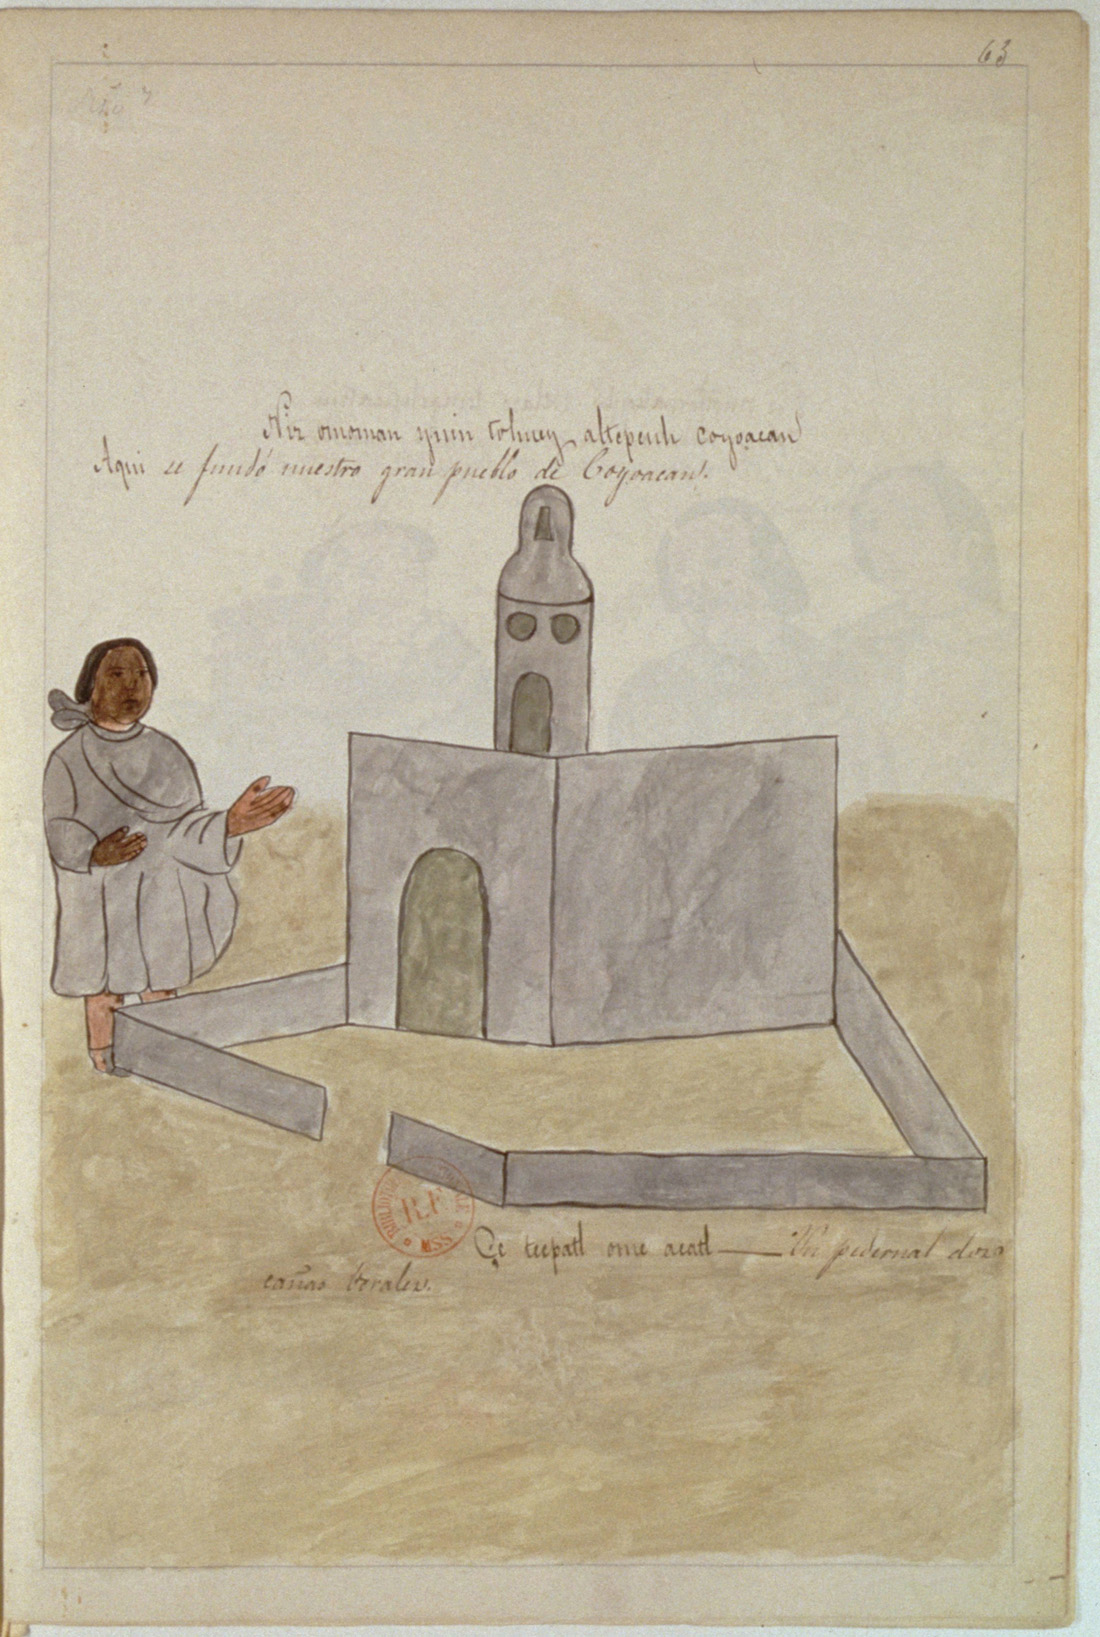 63
Niz omoman ynin tohuey altepeuh coyoacan
Aqui se fundó nuestro gran pueblo de Coyoacan.
R.F
MSS
Çe tecpatl ome acatl — Un pedernal dos
cañas